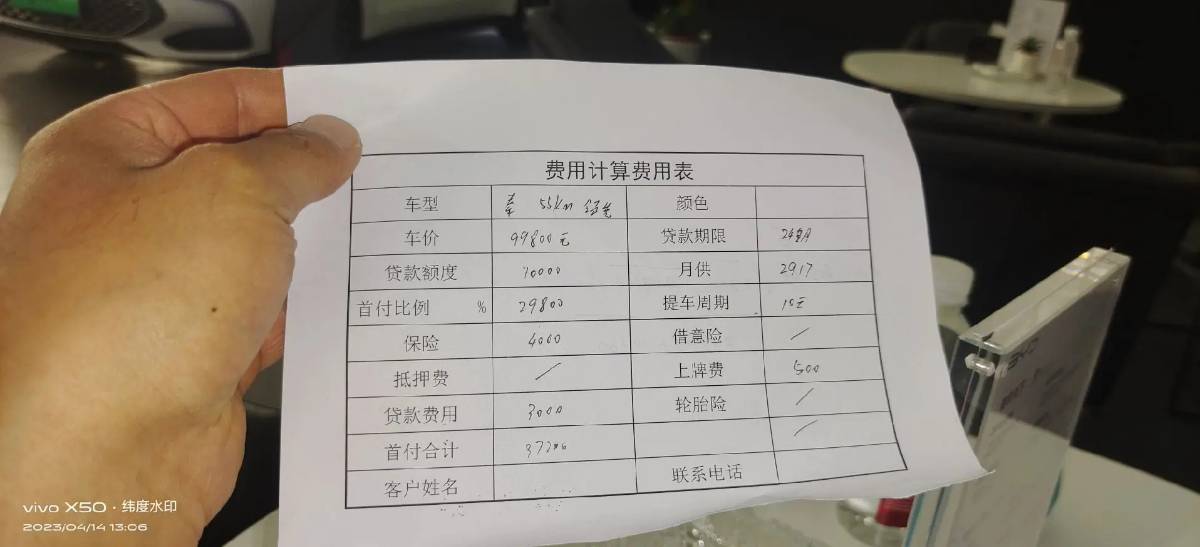 费用计算费用表
车型 秦 55km 领先 颜色
车价 99800元 贷款期限 24期
贷款额度 70000 月供 2917
首付比例 % 29800 提车周期 10天
保险 4000 借意险 /
抵押费 / 上牌费 500
贷款费用 3000 轮胎险 /
首付合计 /
客户姓名 联系电话
vivo X50 · 纬度水印
2023/04/14 13:06